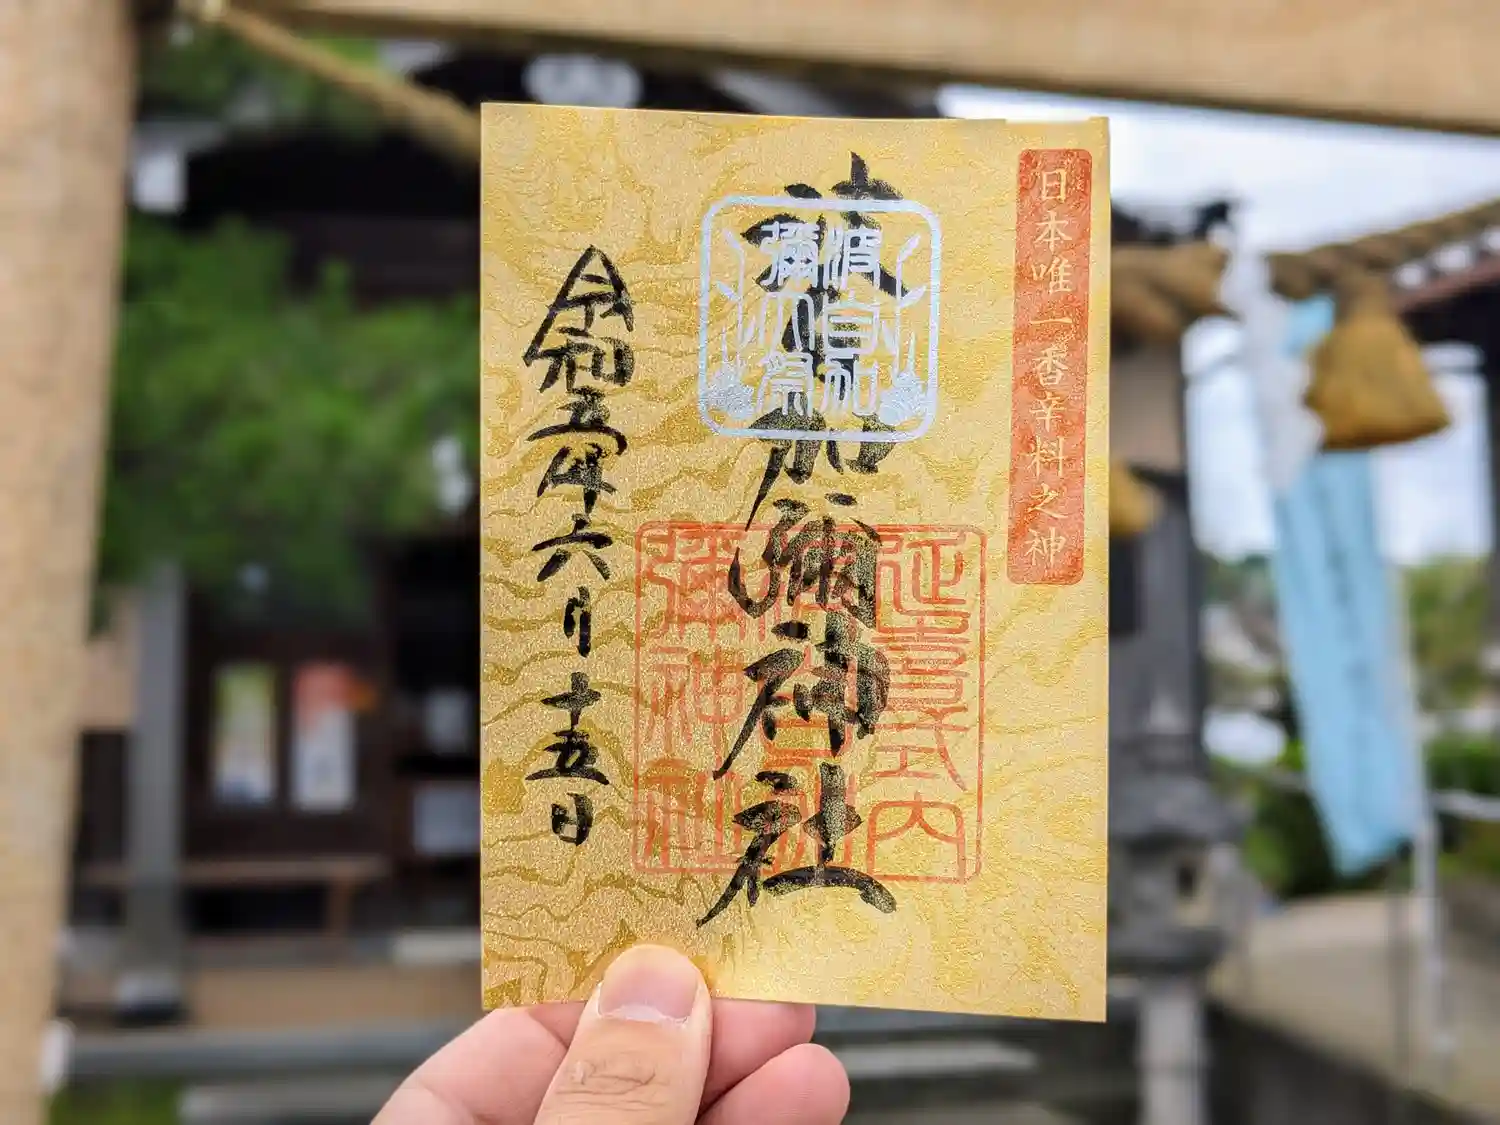 日本唯一香辛料之神
波自加彌神社
波自加
彌大祭
延喜式内
波自加
彌神社
令和五年六月十五日